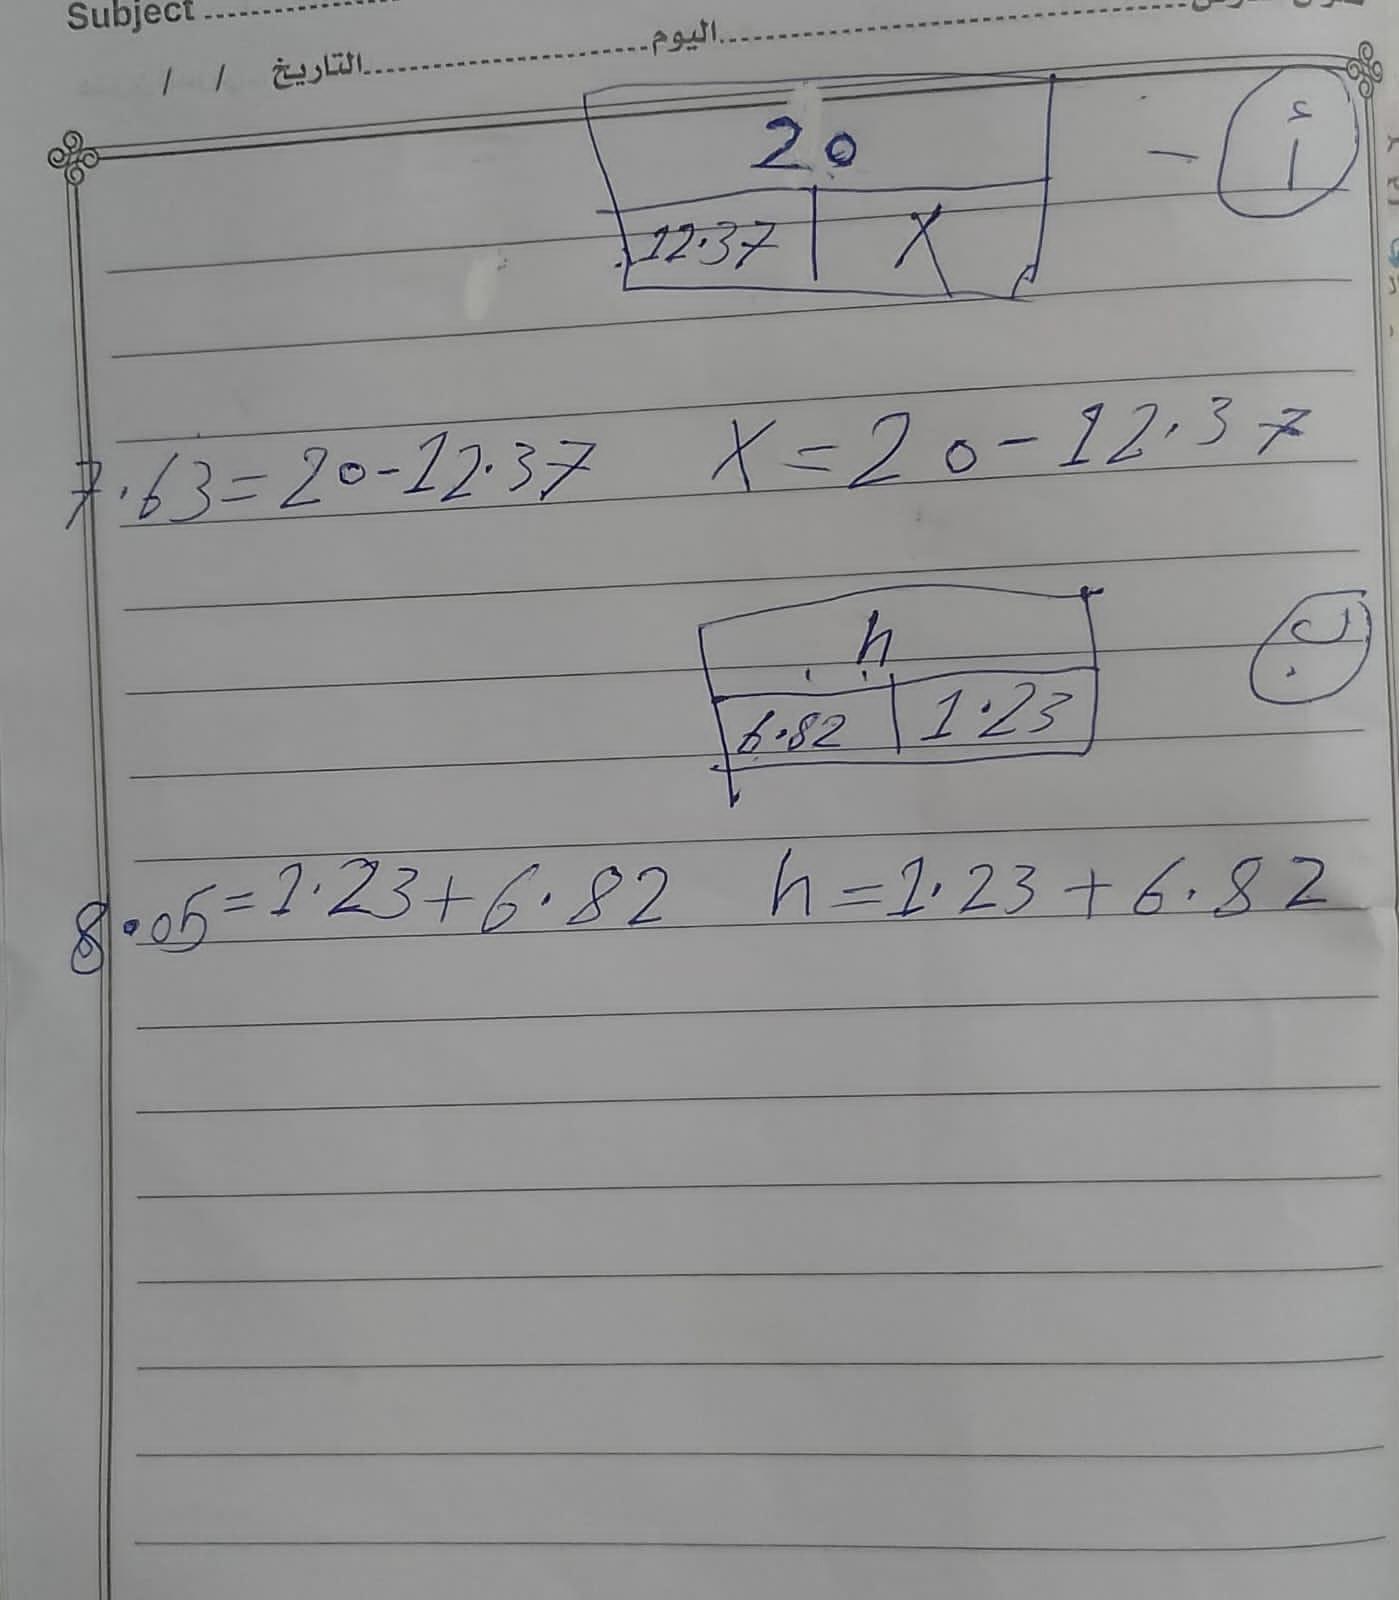 Subject
اليوم
التاريخ / /
أ -
20
12.37 X
X = 20 - 12.37
7.63 = 20 - 12.37
ب
h
6.82 1.23
h = 1.23 + 6.82
8.05 = 1.23 + 6.82